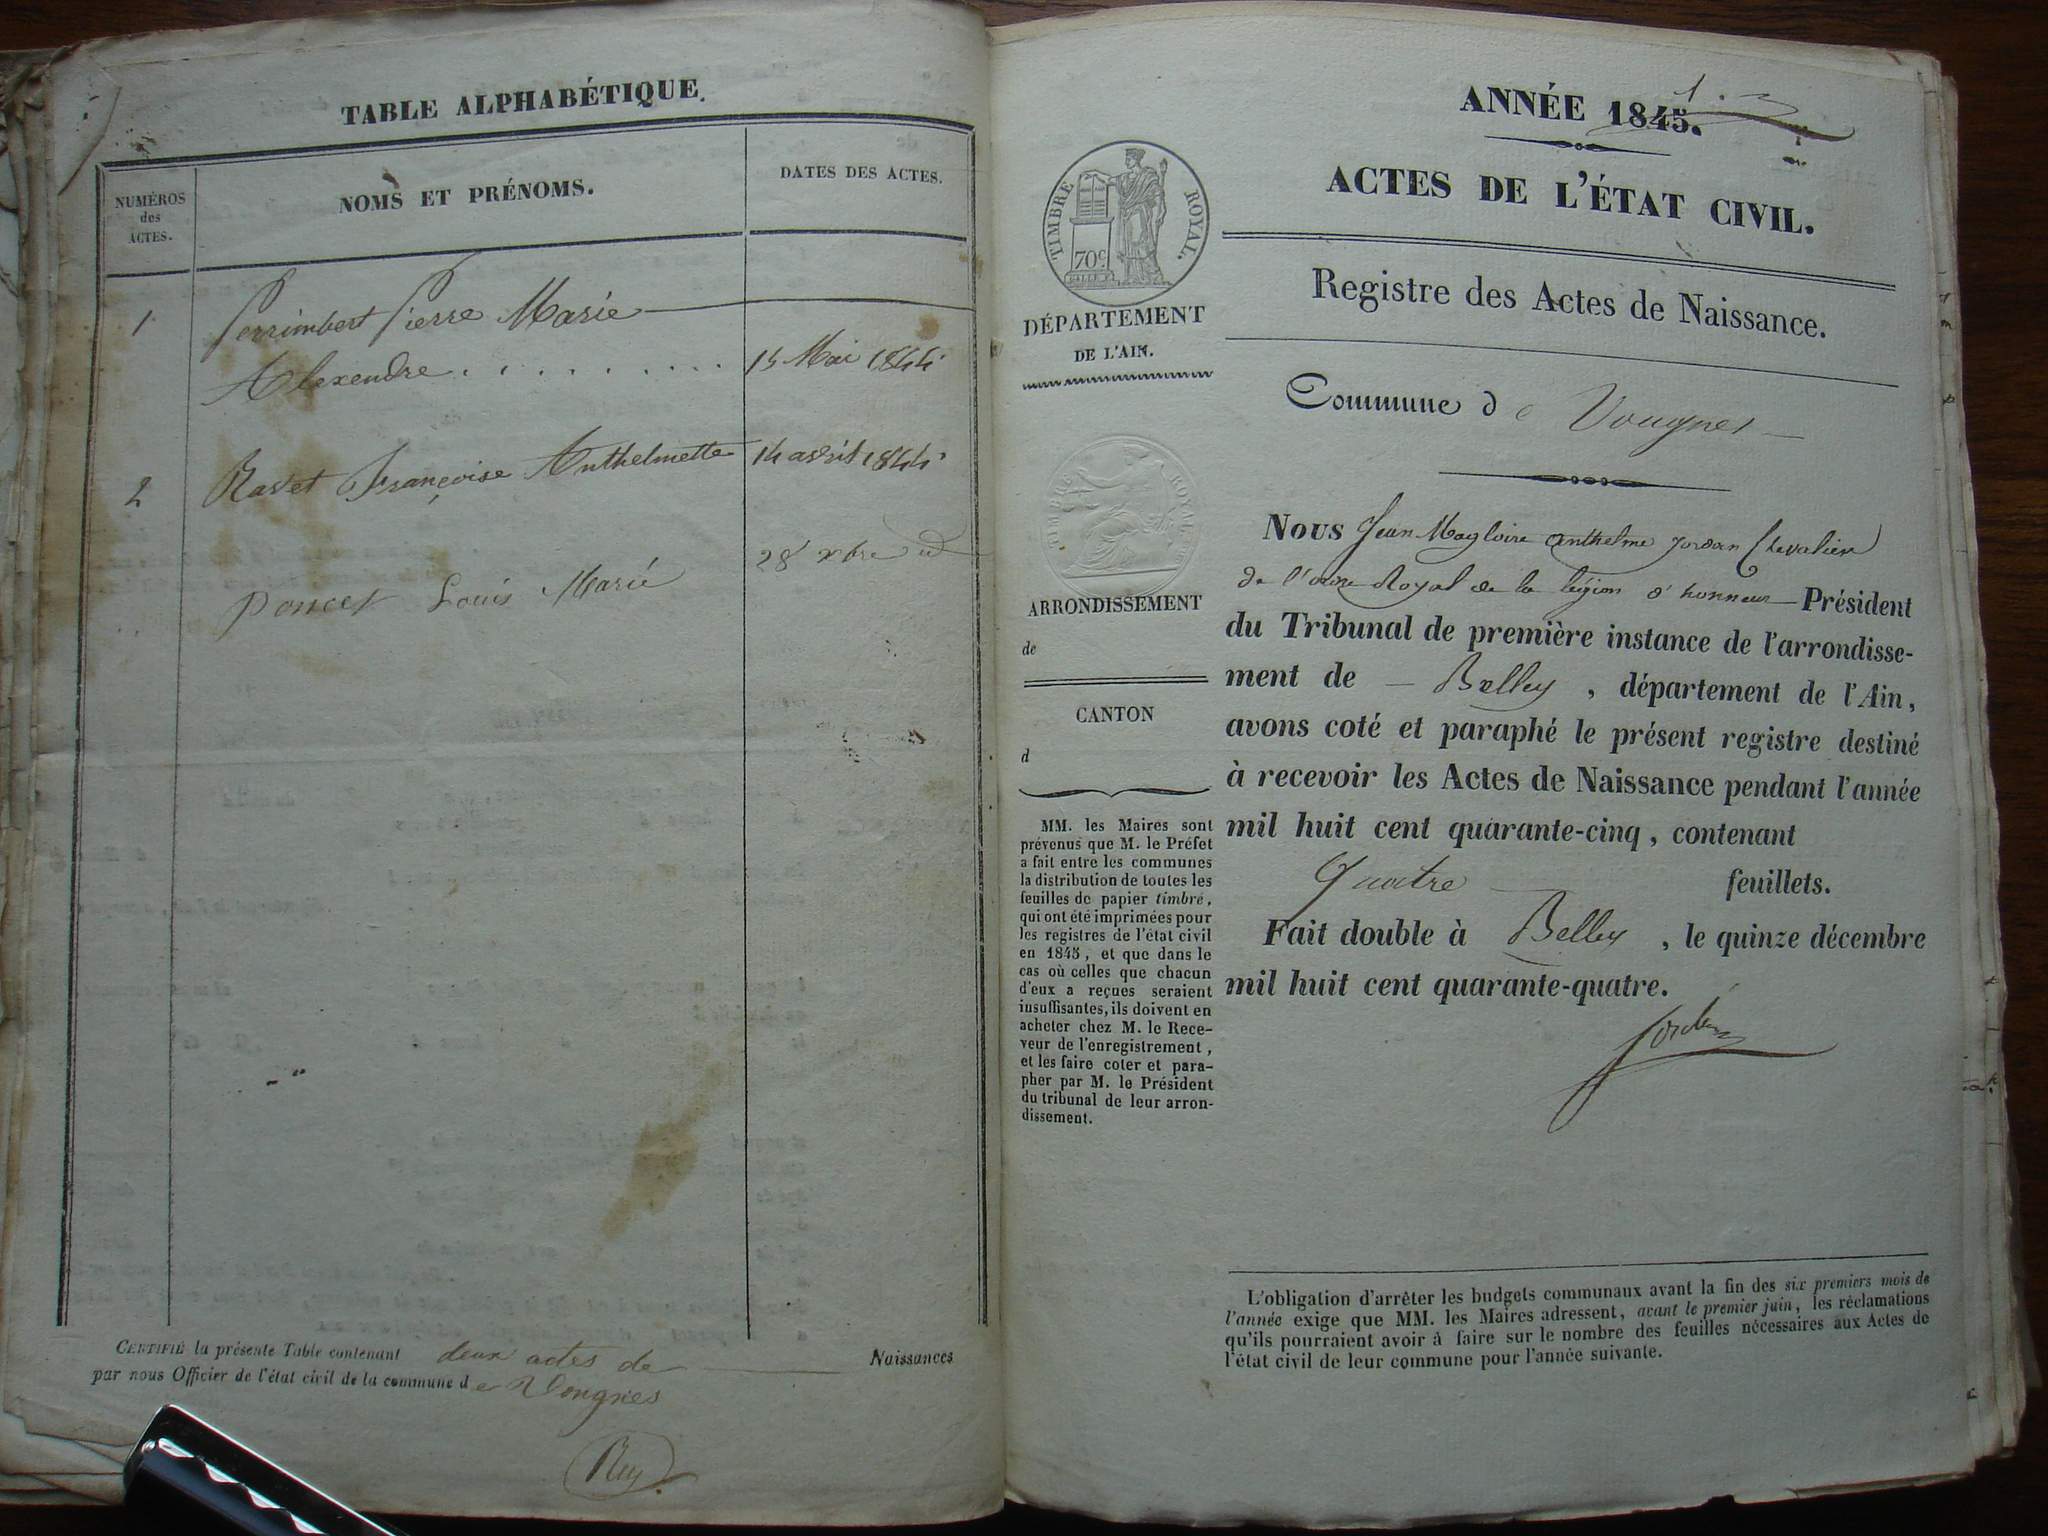 TABLE ALPHABÉTIQUE.
NUMÉROS
des
ACTES.
NOMS ET PRÉNOMS.
DATES DES ACTES.
1 Perrimbert Pierre Marie
Alexendre . . . . . . . . . 15 Mai 1844
2 Ravet Françoise Anthelmette 14 avril 1844
Poncet Louis Marie 28 xbre id
CERTIFIÉ la présente Table contenant deux actes de Naissances
par nous Officier de l'état civil de la commune de Vongnes
Rey
ANNÉE 1845.
ACTES DE L'ÉTAT CIVIL.
Registre des Actes de Naissance.
TIMBRE ROYAL.
70c
DÉPARTEMENT
DE L'AIN.
Commune de Vougnes
TIMBRE ROYAL
ARRONDISSEMENT
de
CANTON
d
MM. les Maires sont
prévenus que M. le Préfet
a fait entre les communes
la distribution de toutes les
feuilles de papier timbré,
qui ont été imprimées pour
les registres de l'état civil
en 1845, et que dans le
cas où celles que chacun
d'eux a reçues seraient
insuffisantes, ils doivent en
acheter chez M. le Rece-
veur de l'enregistrement,
et les faire coter et para-
pher par M. le Président
du tribunal de leur arron-
dissement.
Nous Jean Magloire anthelme Jordan Chevalier
de l'ordre Royal de la légion d'honneur Président
du Tribunal de première instance de l'arrondisse-
ment de Belley, département de l'Ain,
avons coté et paraphé le présent registre destiné
à recevoir les Actes de Naissance pendant l'année
mil huit cent quarante-cinq, contenant
Quatre feuillets.
Fait double à Belley, le quinze décembre
mil huit cent quarante-quatre.
Jordan
L'obligation d'arrêter les budgets communaux avant la fin des six premiers mois de
l'année exige que MM. les Maires adressent, avant le premier juin, les réclamations
qu'ils pourraient avoir à faire sur le nombre des feuilles nécessaires aux Actes de
l'état civil de leur commune pour l'année suivante.